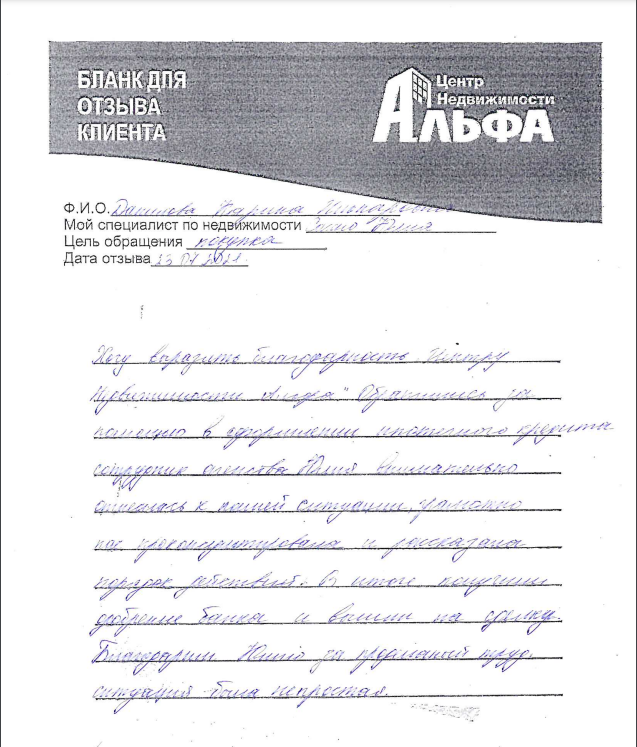 БЛАНК ДЛЯ
ОТЗЫВА
КЛИЕНТА
Центр
Недвижимости
АЛЬФА
Ф.И.О. Данилова Карина
Мой специалист по недвижимости Юлия
Цель обращения покупка
Дата отзыва 23 07 2021
Хочу выразить благодарность Центру
Недвижимости Альфа" Обратились за
помощью в оформлении ипотечного кредита
сотрудник агенства Юлия внимательно
отнеслась к нашей ситуации, грамотно
нас проконсультировала и рассказала
порядок действий. В итоге получили
одобрение банка и вышли на сделку.
Благодарим Юлию за проделанный труд,
ситуация была непростая.